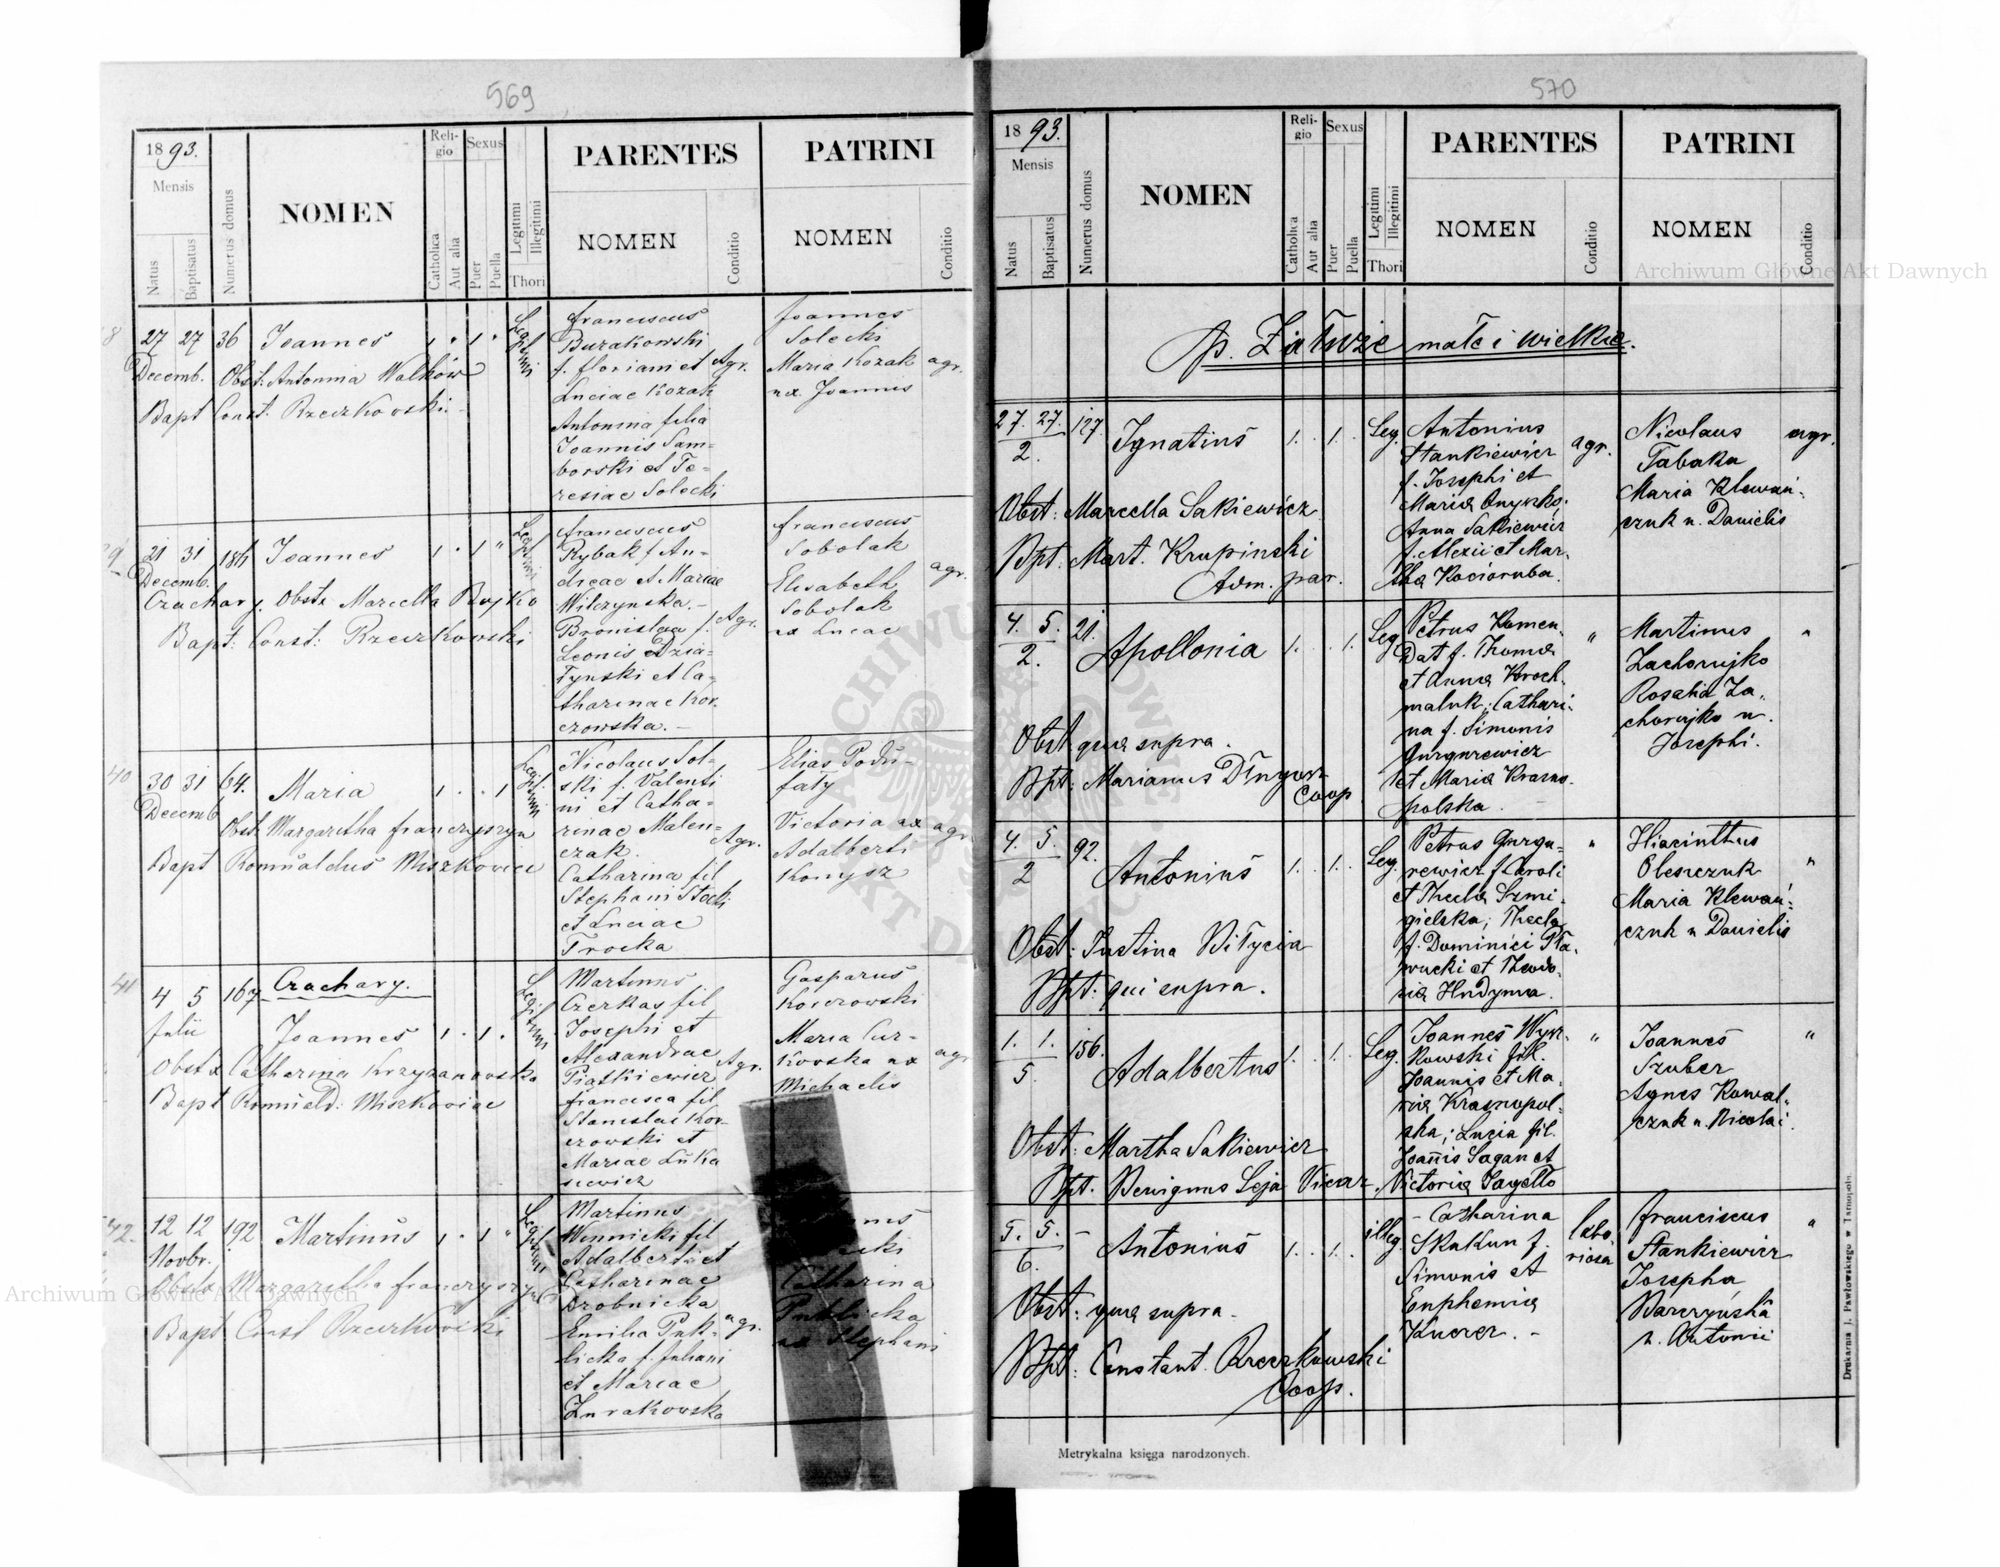 569
1893.
Mensis
Natus
Baptisatus
Numerus domus
NOMEN
Religio
Catholica
Aut alia
Sexus
Puer
Puella
Legitimi
Illegitimi
Thori
PARENTES
NOMEN
Conditio
PATRINI
NOMEN
Conditio
27 27 36 Joannes 1 1
Decemb. Obst. Antonina Walków
Bapt Const. Rzeczkowski
Legitimi
Franciscus
Burakowski
f. Floriani et
Luciae Kozak
Antonina filia
Joannis Sam=
borski et Te=
resiae Solecki
Agr.
Joannes
Solecki
Maria Kozak
ux. Joannis
agr.
21 31 186 Joannes 1 1 "
Decemb.
Czachary. Obstx Marcella Bojko
Bapt: Const: Rzeczkowski
Legitimi
Franciscus
Rybak f An-
dreae et Mariae
Wilczynska.-
Bronislava f.
Leonis Dzia=
Tynski et Ca=
tharinae Kor-
czowska.-
Agr.
Franciscus
Sobolak
Elisabeth
Sobolak
ux Lucae
agr.
40
30 31 64. Maria 1 1
Decemb
Obst. Margaretha Franczyszyn
Bapt Romualdus Miszkovice
Legitimi
Nicolaus Sol-
ski f. Valenti
ni et Catha=
rinae Malen=
czak.
Catharina fil
Stephani Stocki
et Luciae
Trocka
Agr.
Elias Podu-
faty
Victoria ux
Adalberti
Konysz
agr
41
4 5 167 Czachary.
Julii
Joannes 1 1
Obstx Catherina Krzyzanovska
Bapt Romuald: Miszkoviae
Legitimi
Martinus
Czerkas fil
Josephi et
Alexandrae
Piatkiewicz
Francisca fil
Stanislai Kor-
czowski et
Mariae Luka
siewicz
Agr.
Gasparus
Koczrowski
Maria Cur-
kovska ux
Michaelis
agr
42.
12 12 192 Martinus 1 1 "
Novbr.
Obstx Margaretha Franczyszyn
Bapt Const Rzeczkowski
Legitimi
Martinus
Winnicki fil
Adalberti et
Catharinae
Drobnicka
Emilia Puk-
licka f. Juliani
et Mariae
Zurakowska
agr.
Catharina
Puklicka
ux Stephani
570
1893.
Mensis
Natus
Baptisatus
Numerus domus
NOMEN
Religio
Catholica
Aut alia
Sexus
Puer
Puella
Legitimi
Illegitimi
Thori
PARENTES
NOMEN
Conditio
PATRINI
NOMEN
Conditio
p. Załuże małe i wielkie.
27. 27. 127. Ignatius 1. 1. Leg.
2.
Obst: Marcella Sakiewicz
Bpt: Mart. Krupinski
Adm. par.
Antonius
Stankiewicz
f. Josephi et
Maria Onyszko.
Anna Sakiewicz
f. Alexii et Mar-
tha Kocioruba.
agr.
Nicolaus
Tabaka
Maria Klewań-
czuk u. Danielis
agr.
4. 5. 21. Apollonia 1. 1. Leg.
2.
Obst. quae supra.
Bpt: Marianus Długosz
Coop
Petrus Komen-
dat f. Thomae
et Anna Kroch-
maluk; Cathari-
na f. Simonis
Gurgurewicz
et Maria Krasno-
polska. -
"
Martinus
Zachorujko
Rosalia Za-
chorujko u.
Josephi.
"
4. 5. 92. Antonius 1. 1. Leg.
2
Obst: Justina Witycia
Bpt: qui supra.
Petrus Gurgu-
rewicz f. Caroli
et Thecla Szmi-
gielska; Thecla
f. Dominici Pła-
wucki et Theodo-
sia Hudyma.
"
Hiacinthus
Oleszczuk
Maria Klewań-
czuk u Danielis
"
1. 1. 156. Adalbertus 1. 1. Leg.
5.
Obst: Martha Sakiewicz
Bpt. Benignus Leja Vicar.
Joannes Wysz-
kowski fil.
Joannis et Ma-
ria Krasnopol-
ska; Lucia fil.
Joañis Sagan et
Victoria Jagełło
"
Joannes
Szuber
Agnes Kowal-
czuk u. Nicolai.
"
5. 5. - Antonius 1. 1. illeg.
6.
Obst: quae supra.
Bpt: Constant. Rzeczkowski
Coop.
- Catharina
Skakun f.
Simonis et
Euphemia
Kucer. -
labo
riosa
Franciscus
Stankiewicz
Josepha
Barczyńska
u. Antonii
"
Metrykalna księga narodzonych.
Drukarnia J. Pawłowskiego w Tarnopolu
Archiwum Główne Akt Dawnych
Archiwum Główne Akt Dawnych